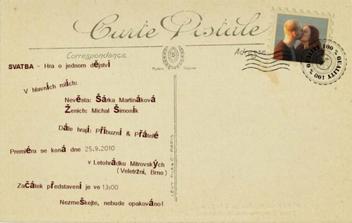 Carte Postale
Correspondance
Adresse
100% QUALITY 100%
SVATBA - Hra o jednom dějství
V hlavních rolích:
Nevěsta: Šárka Martináková
Ženich: Michal Šimoník
Dále hrají: Příbuzní & Přátelé
Premiéra se koná dne 25.9.2010
v Letohrádku Mitrovských
(Veletržní, Brno)
Začátek představení je ve 13:00
Nezmeškejte, nebude opakováno!